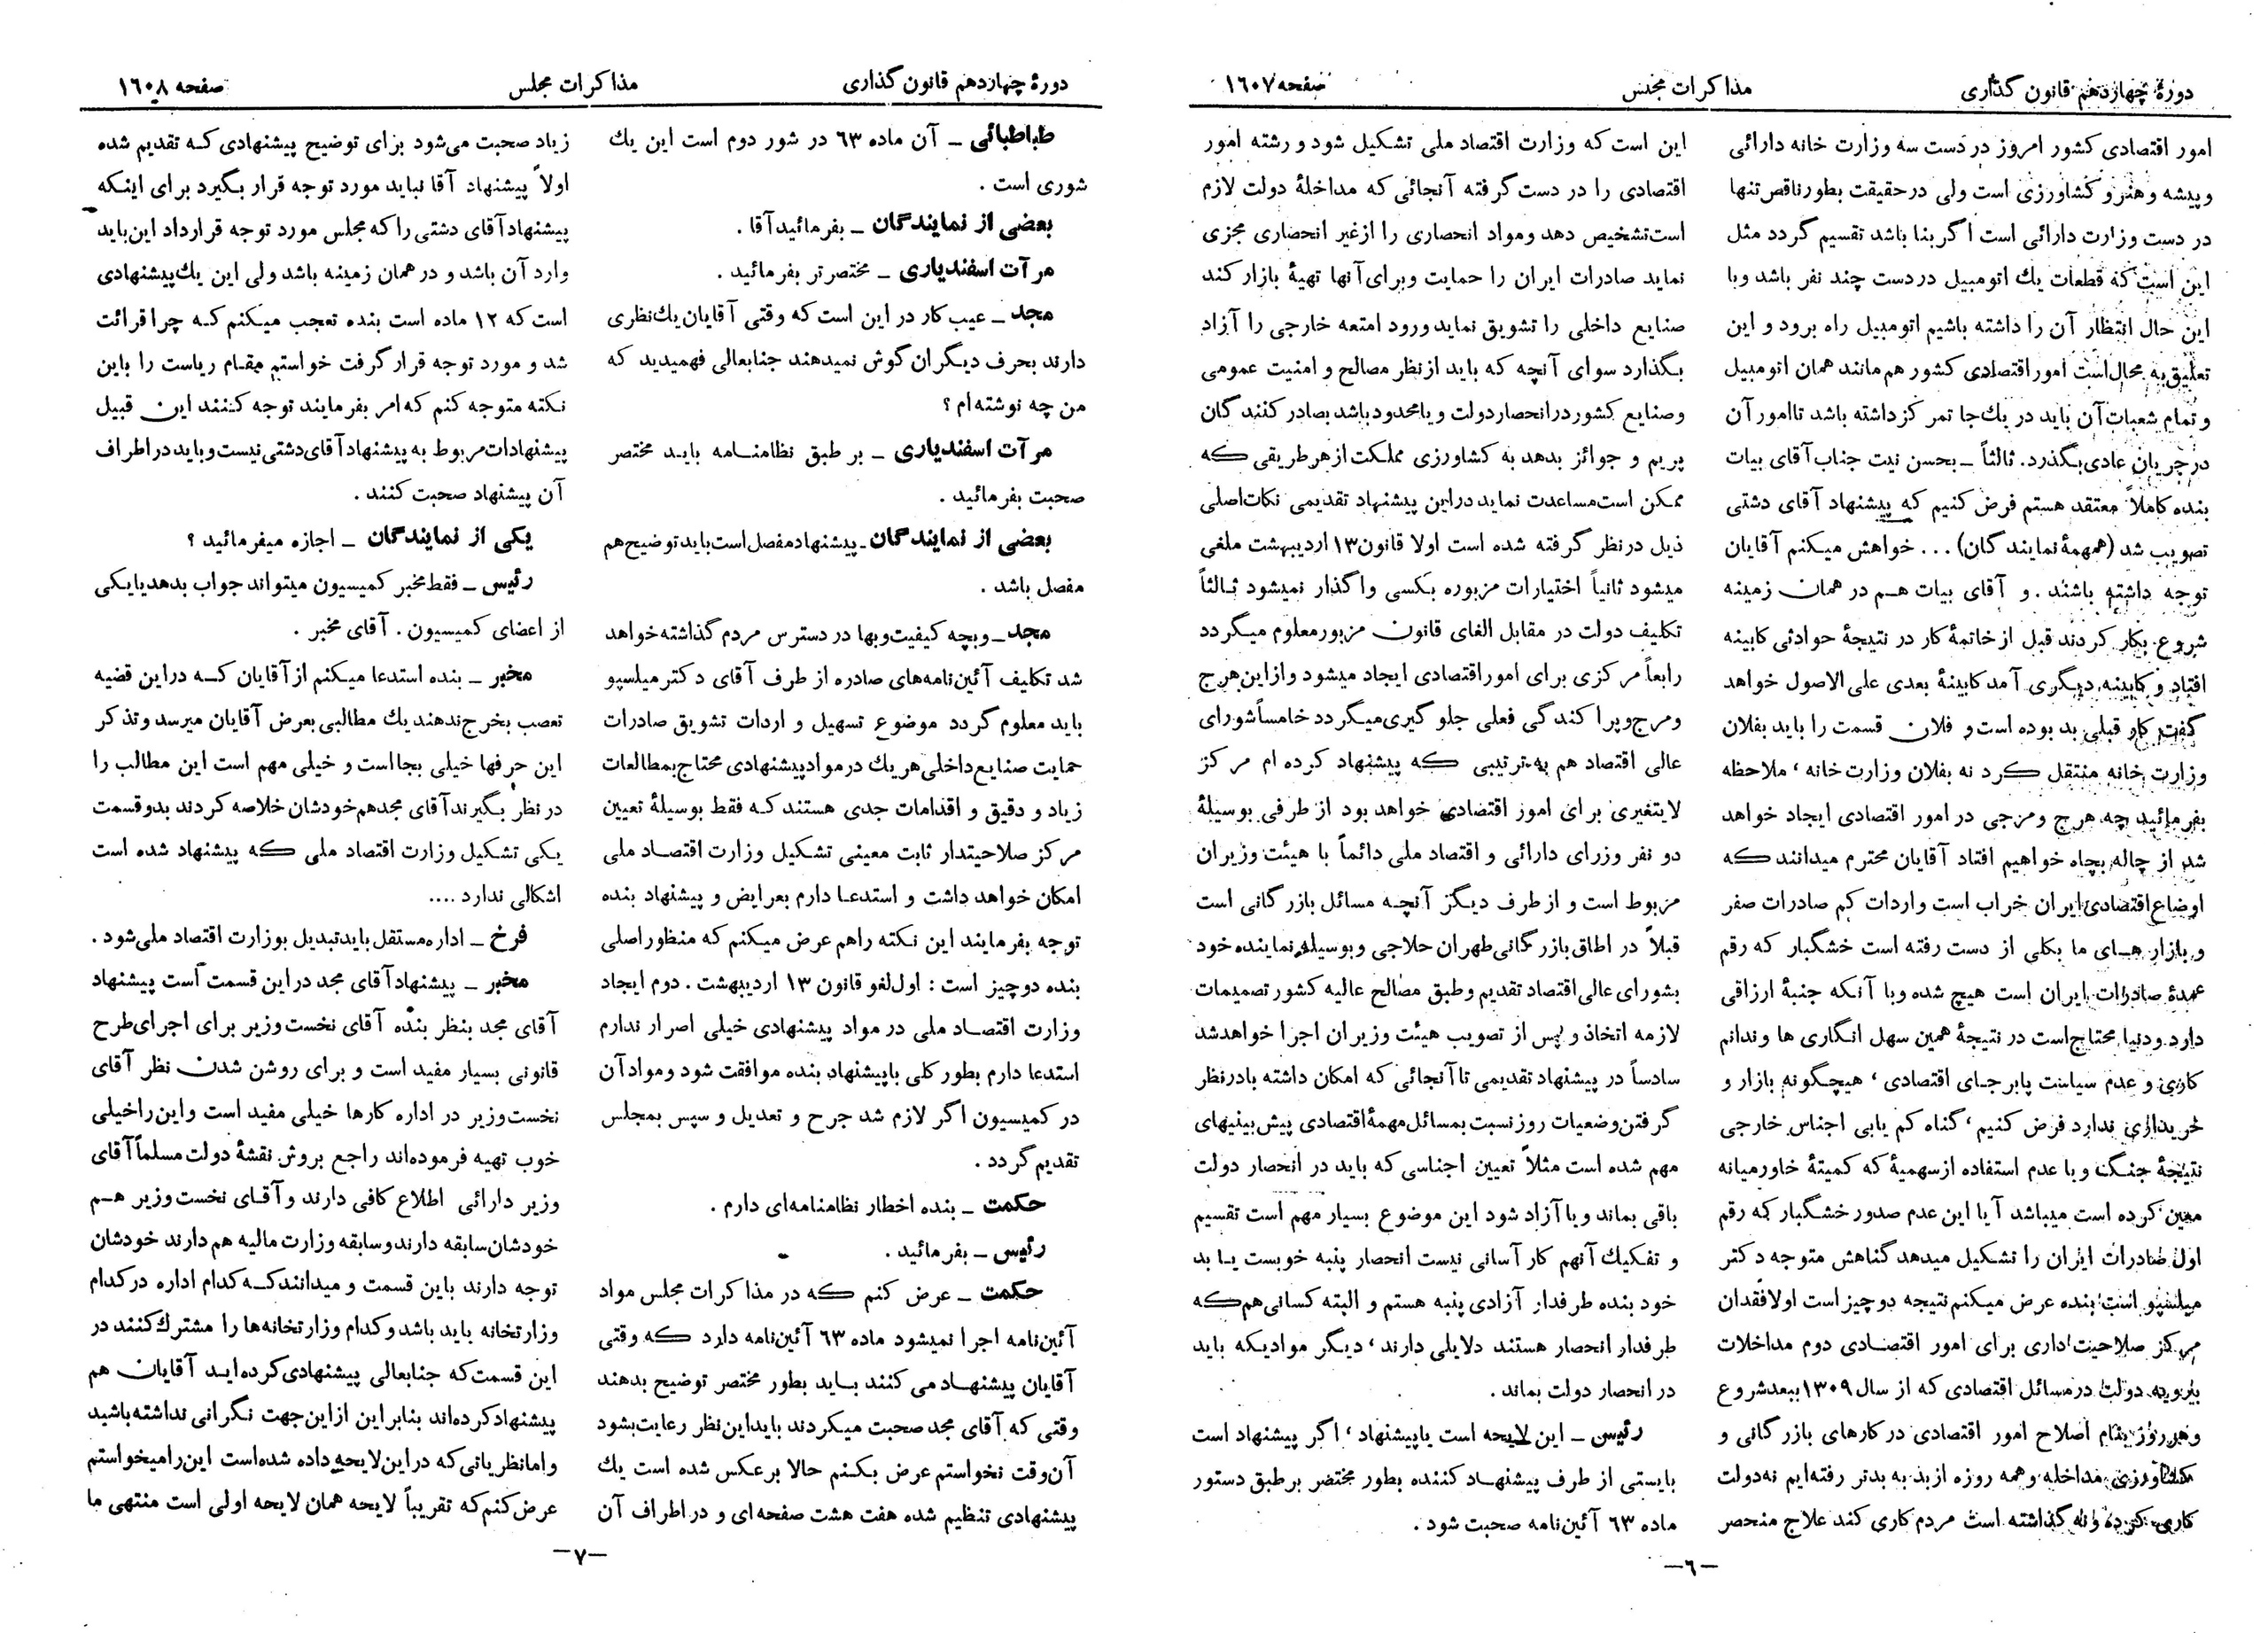 دورهٔ چهاردهم قانون گذاری
مذاکرات مجلس
صفحه ۱۶۰۷
امور اقتصادی کشور امروز در دست سه وزارت خانه دارائی
و پیشه و هنر و کشاورزی است ولی در حقیقت بطور ناقص تنها
در دست وزارت دارائی است اگر بنا باشد تقسیم گردد مثل
این است که قطعات یك اتومبیل در دست چند نفر باشد و با
این حال انتظار آن را داشته باشیم اتومبیل راه برود و این
تعلیق به محال است امور اقتصادی کشور هم مانند همان اتومبیل
و تمام شعبات آن باید در یك جا تمرکز داشته باشد تا امور آن
در جریان عادی بگذرد. ثالثاً ـ بحسن نیت جناب آقای بیات
بنده کاملاً معتقد هستم فرض کنیم که پیشنهاد آقای دشتی
تصویب شد (همهمهٔ نمایندگان) ... خواهش میکنم آقایان
توجه داشته باشند . و آقای بیات هم در همان زمینه
شروع بکار کردند قبل از خاتمهٔ کار در نتیجهٔ حوادثی کابینه
افتاد و کابینه دیگری آمد کابینهٔ بعدی علی الاصول خواهد
گفت کار قبلی بد بوده است و فلان قسمت را باید بفلان
وزارت خانه منتقل کرد نه بفلان وزارت خانه ، ملاحظه
بفرمائید چه هرج و مرجی در امور اقتصادی ایجاد خواهد
شد از چاله بچاه خواهیم افتاد آقایان محترم میدانند که
اوضاع اقتصادی ایران خراب است واردات کم صادرات صفر
و بازار های ما بکلی از دست رفته است خشگبار که رقم
عمدهٔ صادرات ایران است هیچ شده و با آنکه جنبهٔ ارزاقی
دارد و دنیا محتاج است در نتیجهٔ همین سهل انگاری ها و ندانم
کاری و عدم سیاست پابرجای اقتصادی ، هیچگونه بازار و
خریداری ندارد فرض کنیم ، گناه کم یابی اجناس خارجی
نتیجهٔ جنگ و با عدم استفاده از سهمیهٔ که کمیتهٔ خاورمیانه
معین کرده است میباشد آیا این عدم صدور خشگبار که رقم
اول صادرات ایران را تشکیل میدهد گناهش متوجه دکتر
میلسپو است بنده عرض میکنم نتیجه دو چیز است اولا فقدان
مرکز صلاحیت داری برای امور اقتصادی دوم مداخلات
بیرویه دولت در مسائل اقتصادی که از سال ۱۳۰۹ ببعد شروع
و هر روز بنام اصلاح امور اقتصادی در کارهای بازرگانی و
کشاورزی مداخله و همه روزه از بد به بدتر رفته‌ایم نه دولت
کاری کرده و نه گذاشته است مردم کاری کند علاج منحصر
این است که وزارت اقتصاد ملی تشکیل شود و رشته امور
اقتصادی را در دست گرفته آنجائی که مداخلهٔ دولت لازم
است تشخیص دهد و مواد انحصاری را از غیر انحصاری مجزی
نماید صادرات ایران را حمایت و برای آنها تهیهٔ بازار کند
صنایع داخلی را تشویق نماید ورود امتعه خارجی را آزاد
بگذارد سوای آنچه که باید از نظر مصالح و امنیت عمومی
و صنایع کشور در انحصار دولت و یا محدود باشد بصادر کنندگان
پریم و جوائز بدهد به کشاورزی مملکت از هر طریقی که
ممکن است مساعدت نماید در این پیشنهاد تقدیمی نکات اصلی
ذیل در نظر گرفته شده است اولا قانون ۱۳ اردیبهشت ملغی
میشود ثانیاً اختیارات مزبوره بکسی واگذار نمیشود ثالثاً
تکلیف دولت در مقابل الغای قانون مزبور معلوم میگردد
رابعاً مرکزی برای امور اقتصادی ایجاد میشود و از این هرج
و مرج و پراکندگی فعلی جلوگیری میگردد خامساً شورای
عالی اقتصاد هم به ترتیبی که پیشنهاد کرده ام مرکز
لایتغیری برای امور اقتصادی خواهد بود از طرفی بوسیلهٔ
دو نفر وزرای دارائی و اقتصاد ملی دائماً با هیئت وزیران
مربوط است و از طرف دیگر آنچه مسائل بازرگانی است
قبلاً در اطاق بازرگانی طهران حلاجی و بوسیله نماینده خود
بشورای عالی اقتصاد تقدیم و طبق مصالح عالیه کشور تصمیمات
لازمه اتخاذ و پس از تصویب هیئت وزیران اجرا خواهد شد
سادساً در پیشنهاد تقدیمی تا آنجائی که امکان داشته با در نظر
گرفتن وضعیات روز نسبت بمسائل مهمهٔ اقتصادی پیش بینیهای
مهم شده است مثلاً تعیین اجناسی که باید در انحصار دولت
باقی بماند و یا آزاد شود این موضوع بسیار مهم است تقسیم
و تفکیك آنهم کار آسانی نیست انحصار پنبه خوبست یا بد
خود بنده طرفدار آزادی پنبه هستم و البته کسانی هم که
طرفدار انحصار هستند دلایلی دارند ، دیگر موادیکه باید
در انحصار دولت بماند .
رئیس ـ این لایحه است یا پیشنهاد ، اگر پیشنهاد است
بایستی از طرف پیشنهاد کننده بطور مختصر بر طبق دستور
ماده ۶۳ آئین‌نامه صحبت شود .
ـ۶ـ
دورهٔ چهاردهم قانون گذاری
مذاکرات مجلس
صفحه ۱۶۰۸
طباطبائی ـ آن ماده ۶۳ در شور دوم است این یك
شوری است .
بعضی از نمایندگان ـ بفرمائید آقا .
مرآت اسفندیاری ـ مختصرتر بفرمائید .
مجد ـ عیب کار در این است که وقتی آقایان یك نظری
دارند بحرف دیگران گوش نمیدهند جنابعالی فهمیدید که
من چه نوشته‌ام ؟
مرآت اسفندیاری ـ بر طبق نظامنامه باید مختصر
صحبت بفرمائید .
بعضی از نمایندگان ـ پیشنهاد مفصل است باید توضیح هم
مفصل باشد .
مجد ـ و بچه کیفیت و بها در دسترس مردم گذاشته خواهد
شد تکلیف آئین‌نامه‌های صادره از طرف آقای دکتر میلسپو
باید معلوم گردد موضوع تسهیل و اردات تشویق صادرات
حمایت صنایع داخلی هریك در مواد پیشنهادی محتاج بمطالعات
زیاد و دقیق و اقدامات جدی هستند که فقط بوسیلهٔ تعیین
مرکز صلاحیتدار ثابت معینی تشکیل وزارت اقتصاد ملی
امکان خواهد داشت و استدعا دارم بعرایض و پیشنهاد بنده
توجه بفرمایند این نکته را هم عرض میکنم که منظور اصلی
بنده دو چیز است : اول لغو قانون ۱۳ اردیبهشت . دوم ایجاد
وزارت اقتصاد ملی در مواد پیشنهادی خیلی اصرار ندارم
استدعا دارم بطور کلی با پیشنهاد بنده موافقت شود و مواد آن
در کمیسیون اگر لازم شد جرح و تعدیل و سپس بمجلس
تقدیم گردد .
حکمت ـ بنده اخطار نظامنامه‌ای دارم .
رئیس ـ بفرمائید .
حکمت ـ عرض کنم که در مذاکرات مجلس مواد
آئین‌نامه اجرا نمیشود ماده ۶۳ آئین‌نامه دارد که وقتی
آقایان پیشنهاد می کنند باید بطور مختصر توضیح بدهند
وقتی که آقای مجد صحبت میکردند باید این نظر رعایت بشود
آن وقت نخواستم عرض بکنم حالا برعکس شده است یك
پیشنهادی تنظیم شده هفت هشت صفحه ای و در اطراف آن
زیاد صحبت می‌شود برای توضیح پیشنهادی که تقدیم شده
اولاً پیشنهاد آقا نباید مورد توجه قرار بگیرد برای اینکه
پیشنهاد آقای دشتی را که مجلس مورد توجه قرار داد این باید
وارد آن باشد و در همان زمینه باشد ولی این یك پیشنهادی
است که ۱۲ ماده است بنده تعجب میکنم که چرا قرائت
شد و مورد توجه قرار گرفت خواستم مقام ریاست را باین
نکته متوجه کنم که امر بفرمایند توجه کنند این قبیل
پیشنهادات مربوط به پیشنهاد آقای دشتی نیست و باید در اطراف
آن پیشنهاد صحبت کنند .
یکی از نمایندگان ـ اجازه میفرمائید ؟
رئیس ـ فقط مخبر کمیسیون میتواند جواب بدهد یا یکی
از اعضای کمیسیون . آقای مخبر .
مخبر ـ بنده استدعا میکنم از آقایان که در این قضیه
تعصب بخرج ندهند یك مطالبی بعرض آقایان میرسد و تذکر
این حرفها خیلی بجا است و خیلی مهم است این مطالب را
در نظر بگیرند آقای مجد هم خودشان خلاصه کردند بدو قسمت
یکی تشکیل وزارت اقتصاد ملی که پیشنهاد شده است
اشکالی ندارد ....
فرخ ـ اداره مستقل باید تبدیل بوزارت اقتصاد ملی شود .
مخبر ـ پیشنهاد آقای مجد در این قسمت است پیشنهاد
آقای مجد بنظر بنده آقای نخست وزیر برای اجرای طرح
قانونی بسیار مفید است و برای روشن شدن نظر آقای
نخست وزیر در اداره کارها خیلی مفید است و این را خیلی
خوب تهیه فرموده‌اند راجع بروش نقشهٔ دولت مسلماً آقای
وزیر دارائی اطلاع کافی دارند و آقای نخست وزیر هم
خودشان سابقه دارند و سابقه وزارت مالیه هم دارند خودشان
توجه دارند باین قسمت و میدانند که کدام اداره در کدام
وزارتخانه باید باشد و کدام وزارتخانه‌ها را مشترك کنند در
این قسمت که جنابعالی پیشنهادی کرده اید آقایان هم
پیشنهاد کرده‌اند بنابر این از این جهت نگرانی نداشته باشید
و اما نظریاتی که در این لایحه داده شده است این را میخواستم
عرض کنم که تقریباً لایحه همان لایحه اولی است منتهی ما
ـ۷ـ